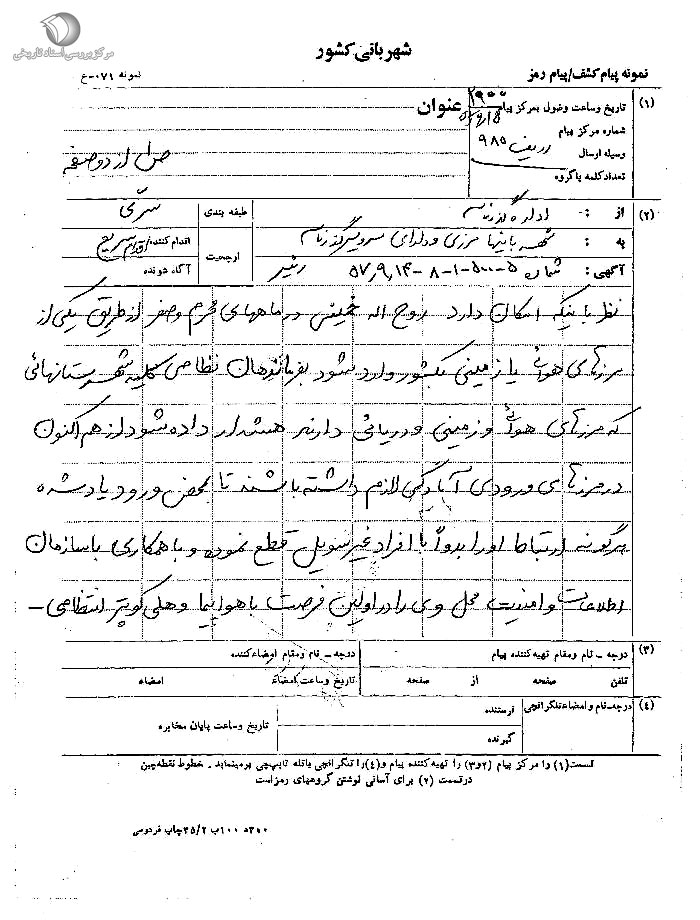 مرکز بررسی اسناد تاریخی
شهربانی کشور
نمونه پیام کشف/پیام رمز
نمونه ۰۷۱-ع
(۱) تاریخ وساعت وصول بمرکز پیام ۱۹۰۰
عنوان
شماره مرکز پیام
۹۸۵
وسیله ارسال
تعدادکلمه یاگروه
صفحه ۱ از دو صفحه
(۲) از :- اداره گذرنامه
طبقه بندی سری
به : شهربانیهای مرزی سرویس گذرنامه
ارجحیت
اقدام کننده: اقدام سریع
آگاه شونده
آگهی: شماره ۵-۵۰۰-۱-۸-۵۷٫۹٫۱۴
نظر باینکه امکان دارد روح اله خمینی در ماههای محرم وصفر از طریق یکی از
مرزهای هوائی یا زمینی بکشور وارد شود بفرماندهان نظامی کلیه شهرستانهائی
که مرزهای هوائی و زمینی و دریائی دارند هشدار داده شود از هم اکنون
در مرزهای ورودی آمادگی لازم داشته باشند تا بمحض ورود یاد شده
هرگونه ارتباط او را بدواً با افراد غیر مسئول قطع نموده و با همکاری با سازمان
اطلاعات و امنیت محل وی را در اولین فرصت با هواپیما و هلی کوپتر انتظامی -
(۳) درجه - نام ومقام تهیه کننده پیام
درجه - نام ومقام امضاءکننده
تلفن صفحه از صفحه
تاریخ وساعت امضاء امضاء
(۴) درجه-نام و امضاء تلگرافچی
فرستنده
گیرنده
تاریخ وساعت پایان مخابره
قسمت(۱) را مرکز پیام (۲و۳) را تهیه کننده پیام و(۴)را تلگرافچی یاتله تایپ چی پرمینماید. خطوط نقطه چین
درقسمت (۲) برای آسانی نوشتن گروههای رمزاست
۳۰۰د ۱۰۰ب ۳۵/۲ چاپ فردوسی